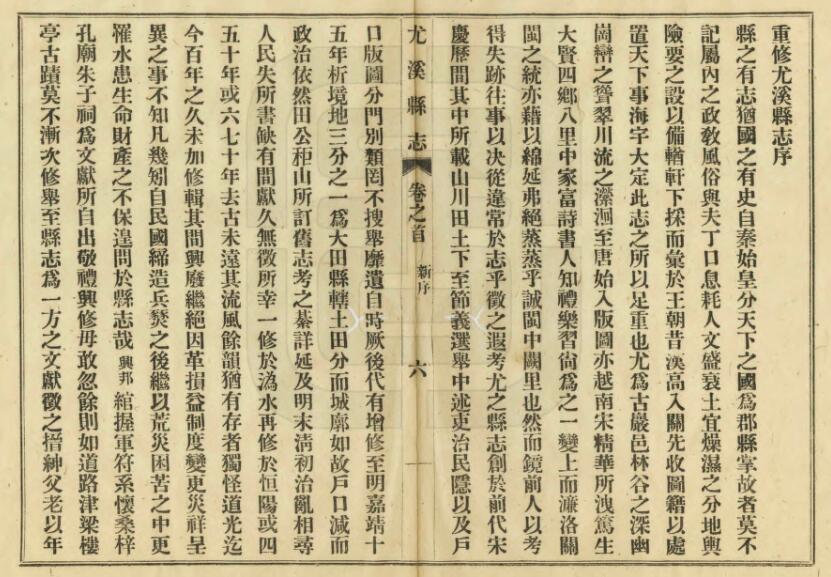 重修尤溪縣志序
縣之有志猶國之有史自秦始皇分天下之國爲郡縣掌故者莫不
記屬內之政敎風俗與夫丁口息耗人文盛衰土宜燥濕之分地輿
險要之設以備輶軒下採而彙於王朝昔漢高入關先收圖籍以處
置天下事海宇大定此志之所以足重也尤爲古巖邑林谷之深幽
崗巒之聳翠川流之瀠洄至唐始入版圖亦越南宋精華所洩篤生
大賢四鄉八里中家富詩書人知禮樂習尙爲之一變上而濂洛關
閩之統亦藉以綿延弗絕蒸蒸乎誠閩中闕里也然而鏡前人以考
得失跡往事以决從違常於志乎徵之遐考尤之縣志創於前代宋
慶歷間其中所載山川田土下至節義選舉中述吏治民隱以及戶
尤溪縣志 卷之首 新序 六
口版圖分門別類罔不搜舉靡遺自時厥後代有增修至明嘉靖十
五年析境地三分之一爲大田縣轄土田分而城廓如故戶口減而
政治依然田公秬山所訂舊志考之綦詳延及明末淸初治亂相尋
人民失所書缺有間獻久無徵所幸一修於溈水再修於恒陽或四
五十年或六七十年去古未遠其流風餘韻猶有存者獨怪道光迄
今百年之久未加修輯其間興廢繼絕因革損益制度變更災祥呈
異之事不知凡幾矧自民國締造兵燹之後繼以荒災困苦之中更
罹水患生命財產之不保遑問於縣志哉興邦綰握軍符系懷桑梓
孔廟朱子祠爲文獻所自出敬禮興修毋敢忽餘則如道路津梁樓
亭古蹟莫不漸次修舉至縣志爲一方之文獻徵之搢紳父老以年